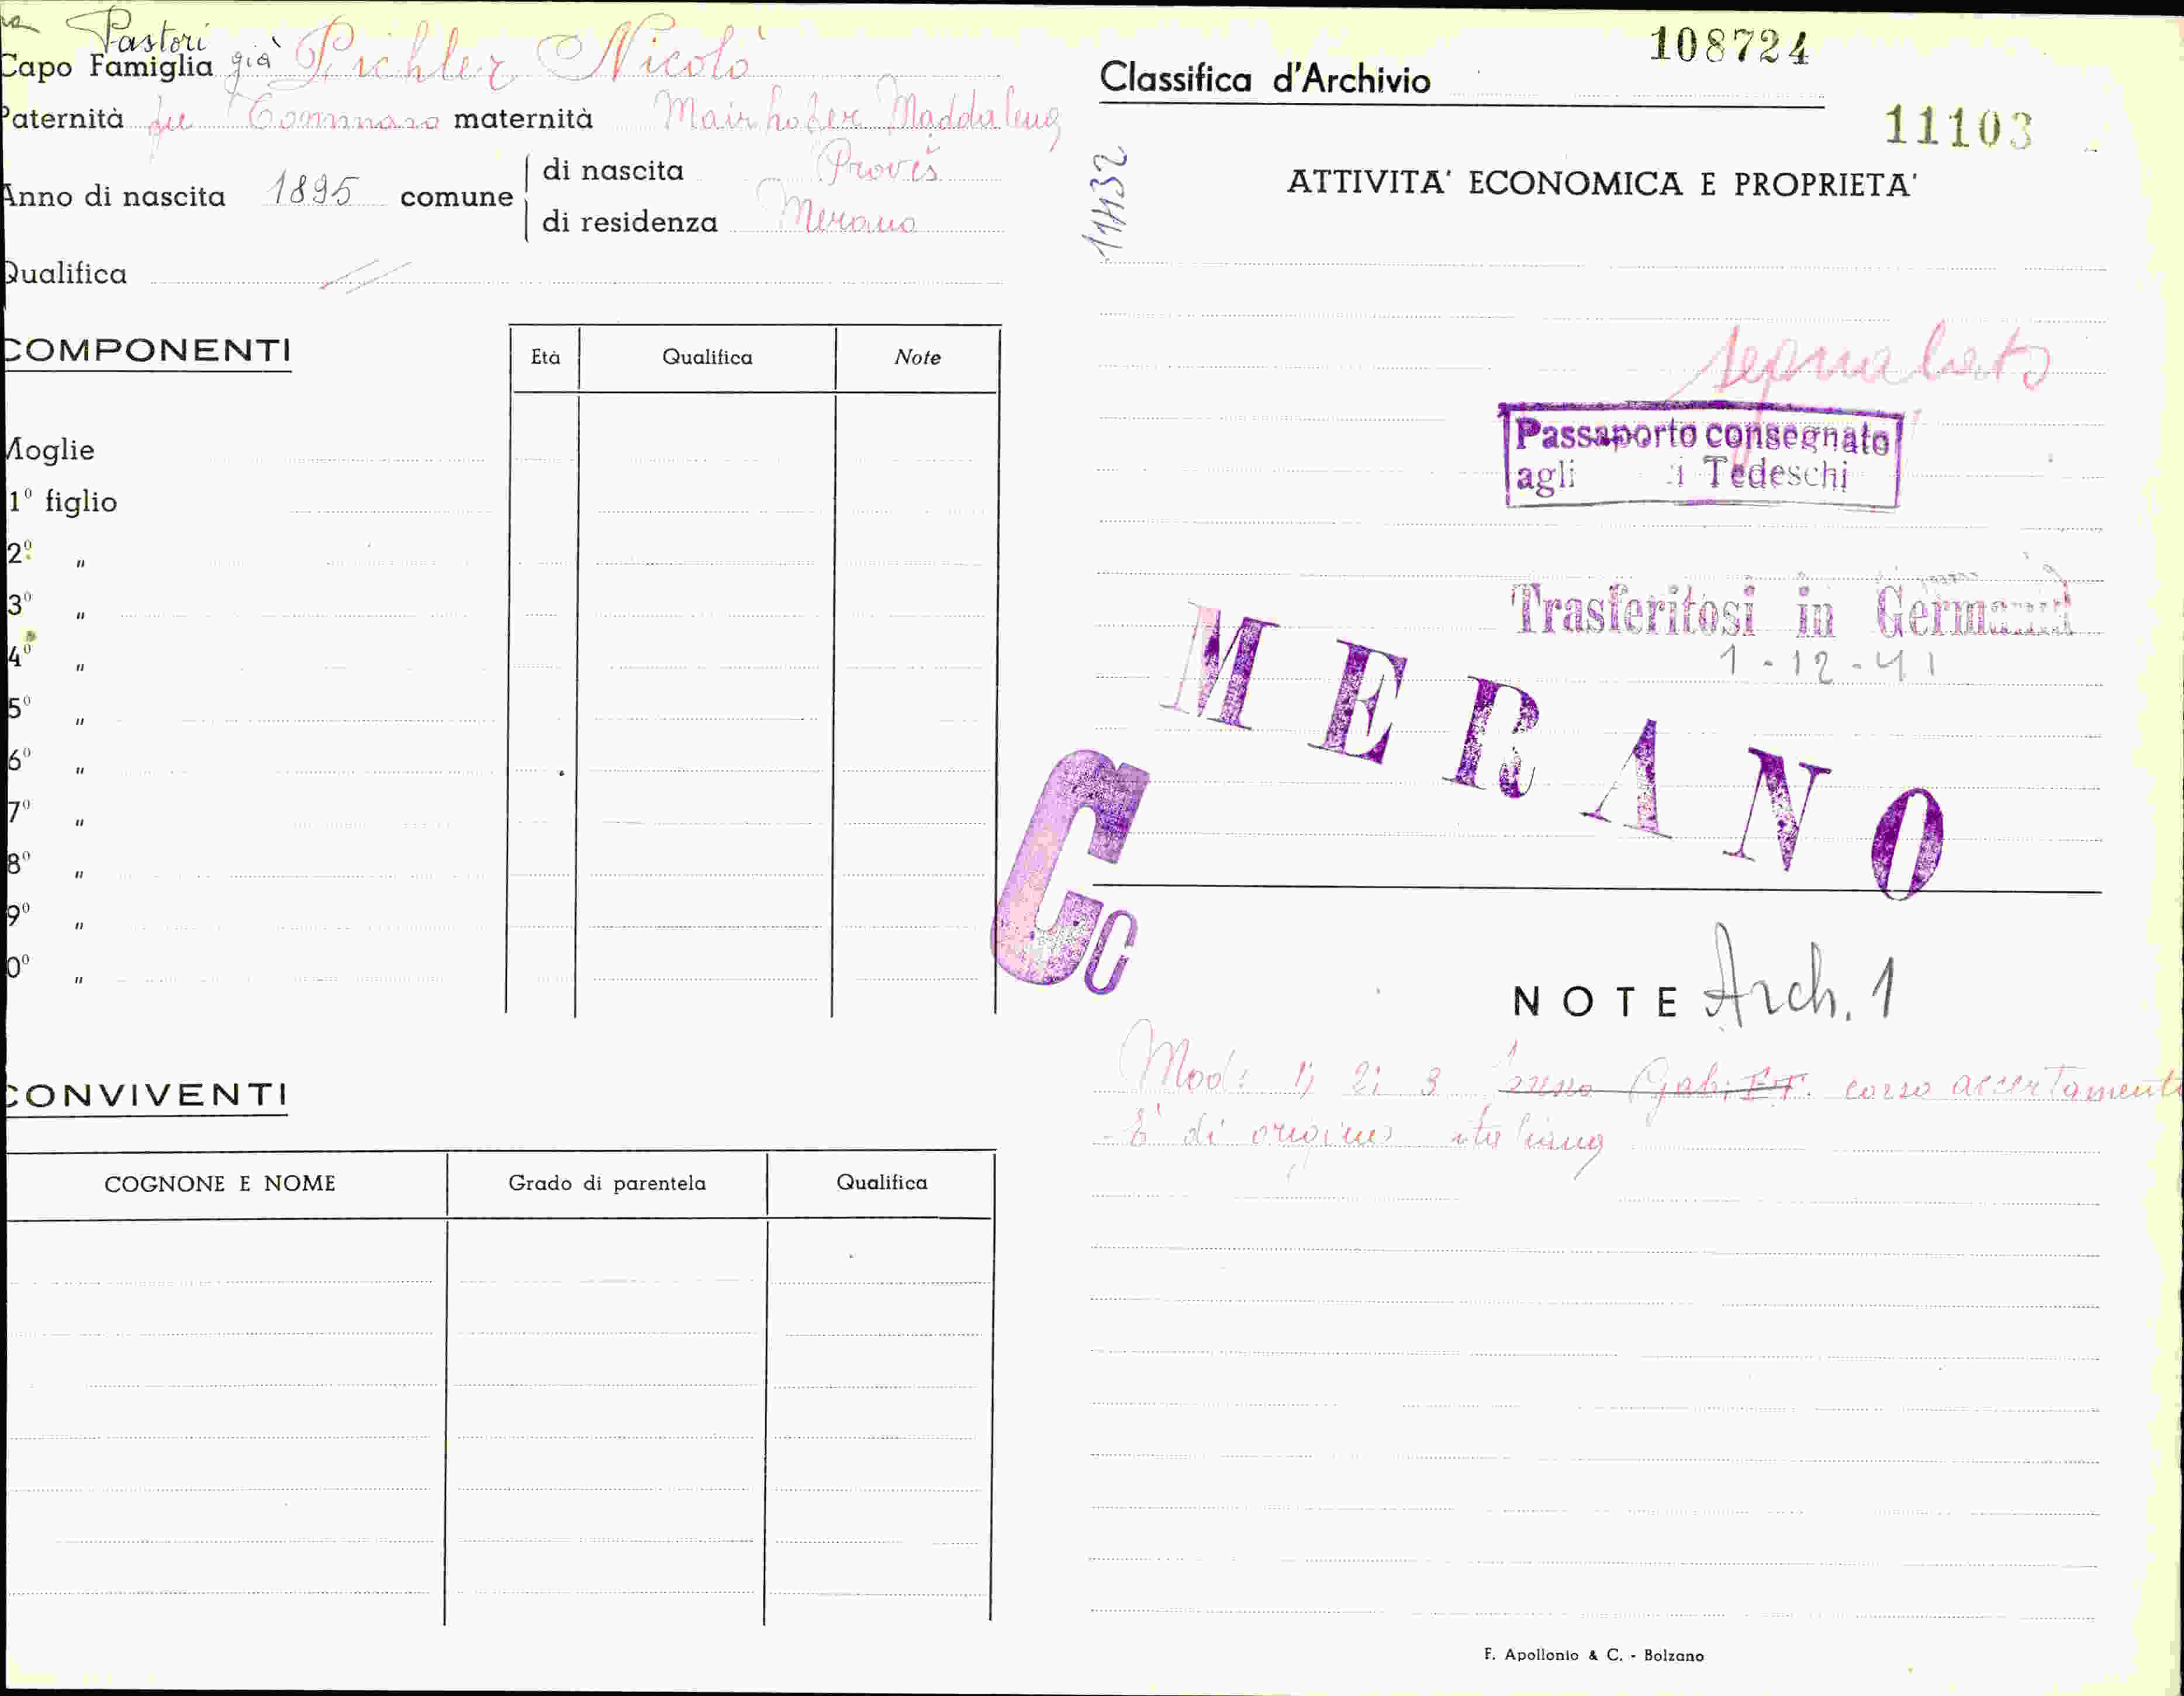 Pastori
Capo Famiglia già Pichler Nicolò
Paternità fu Tommaso maternità Mairhofer Maddalena
Anno di nascita 1895 comune
di nascita Proves
di residenza Merano
Qualifica //
COMPONENTI
Età Qualifica Note
Moglie
1º figlio
2º "
3º "
4º "
5º "
6º "
7º "
8º "
9º "
0º "
CONVIVENTI
COGNONE E NOME Grado di parentela Qualifica
108724
Classifica d'Archivio
11103
11432
ATTIVITA' ECONOMICA E PROPRIETA'
segnalato
Passaporto consegnato
agli i Tedeschi
Trasferitosi in Germania
1-12-41
MERANO
Cc
NOTE Arch. 1
Mod: 1; 2; 3 corso accertamenti
- È di origine italiana
F. Apollonio & C. - Bolzano